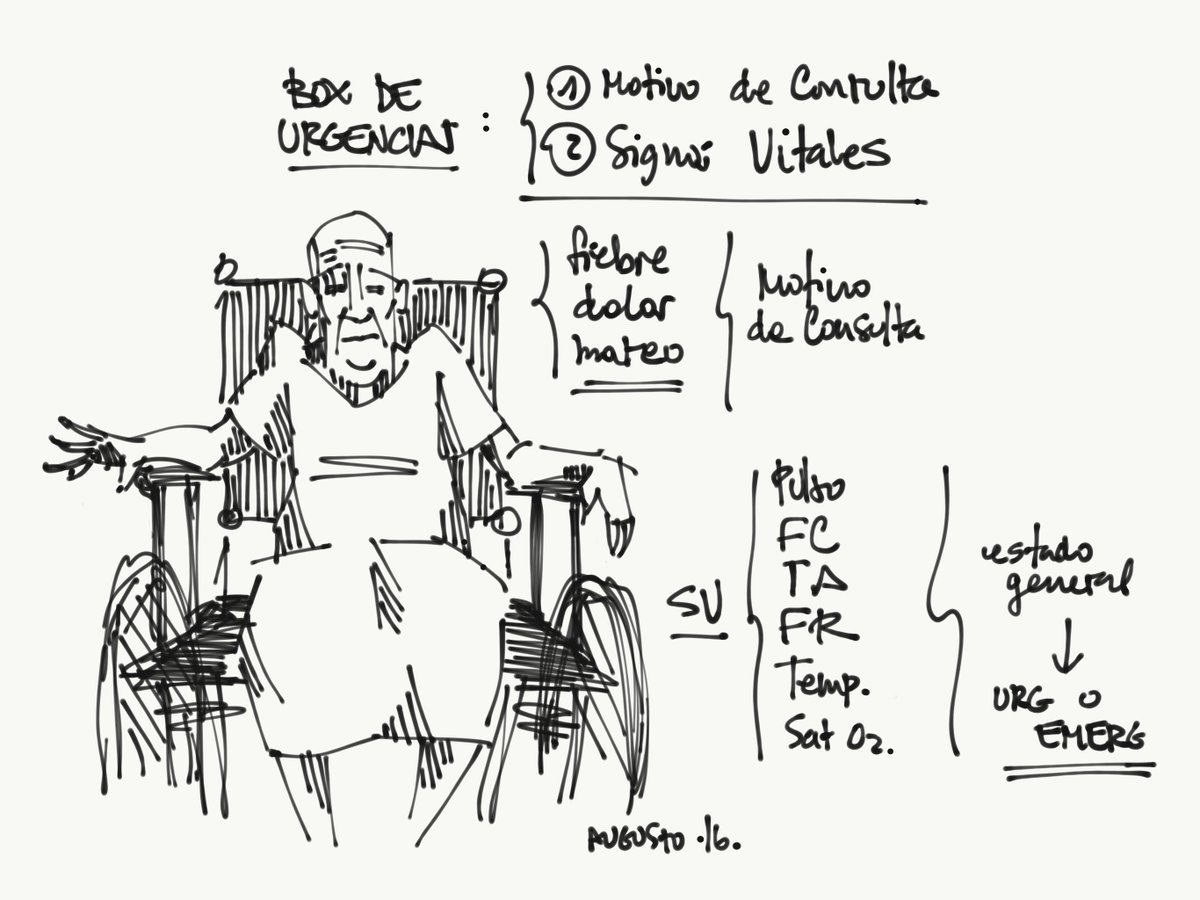 BOX DE
URGENCIAS :
① Motivo de Consulta
② Signos Vitales
fiebre
dolor
mareo
Motivo
de Consulta
SV
Pulso
FC
TA
FR
Temp.
Sat O2.
estado
general
↓
URG o
EMERG
AUGUSTO .16.